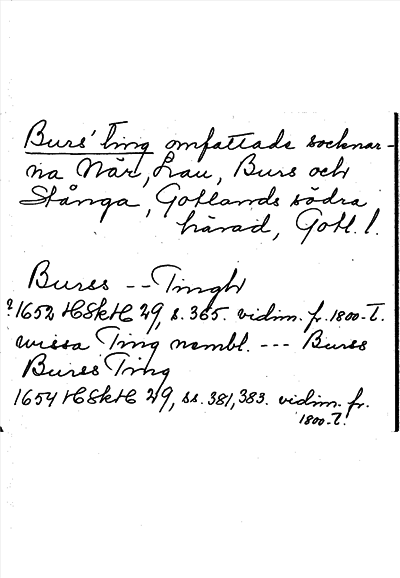 Burs' ting omfattade socknar-
na När, Lau, Burs och
Stånga, Gotlands södra
härad, Gotl. l.
Burss -- Tingh
? 1652 HSkH 29, s. 365. vidim. fr. 1800-t.
wissa Ting nembl. --- Burss
Burss Ting
1654 HSkH 29, ss. 381, 383. vidim. fr.
1800-t.